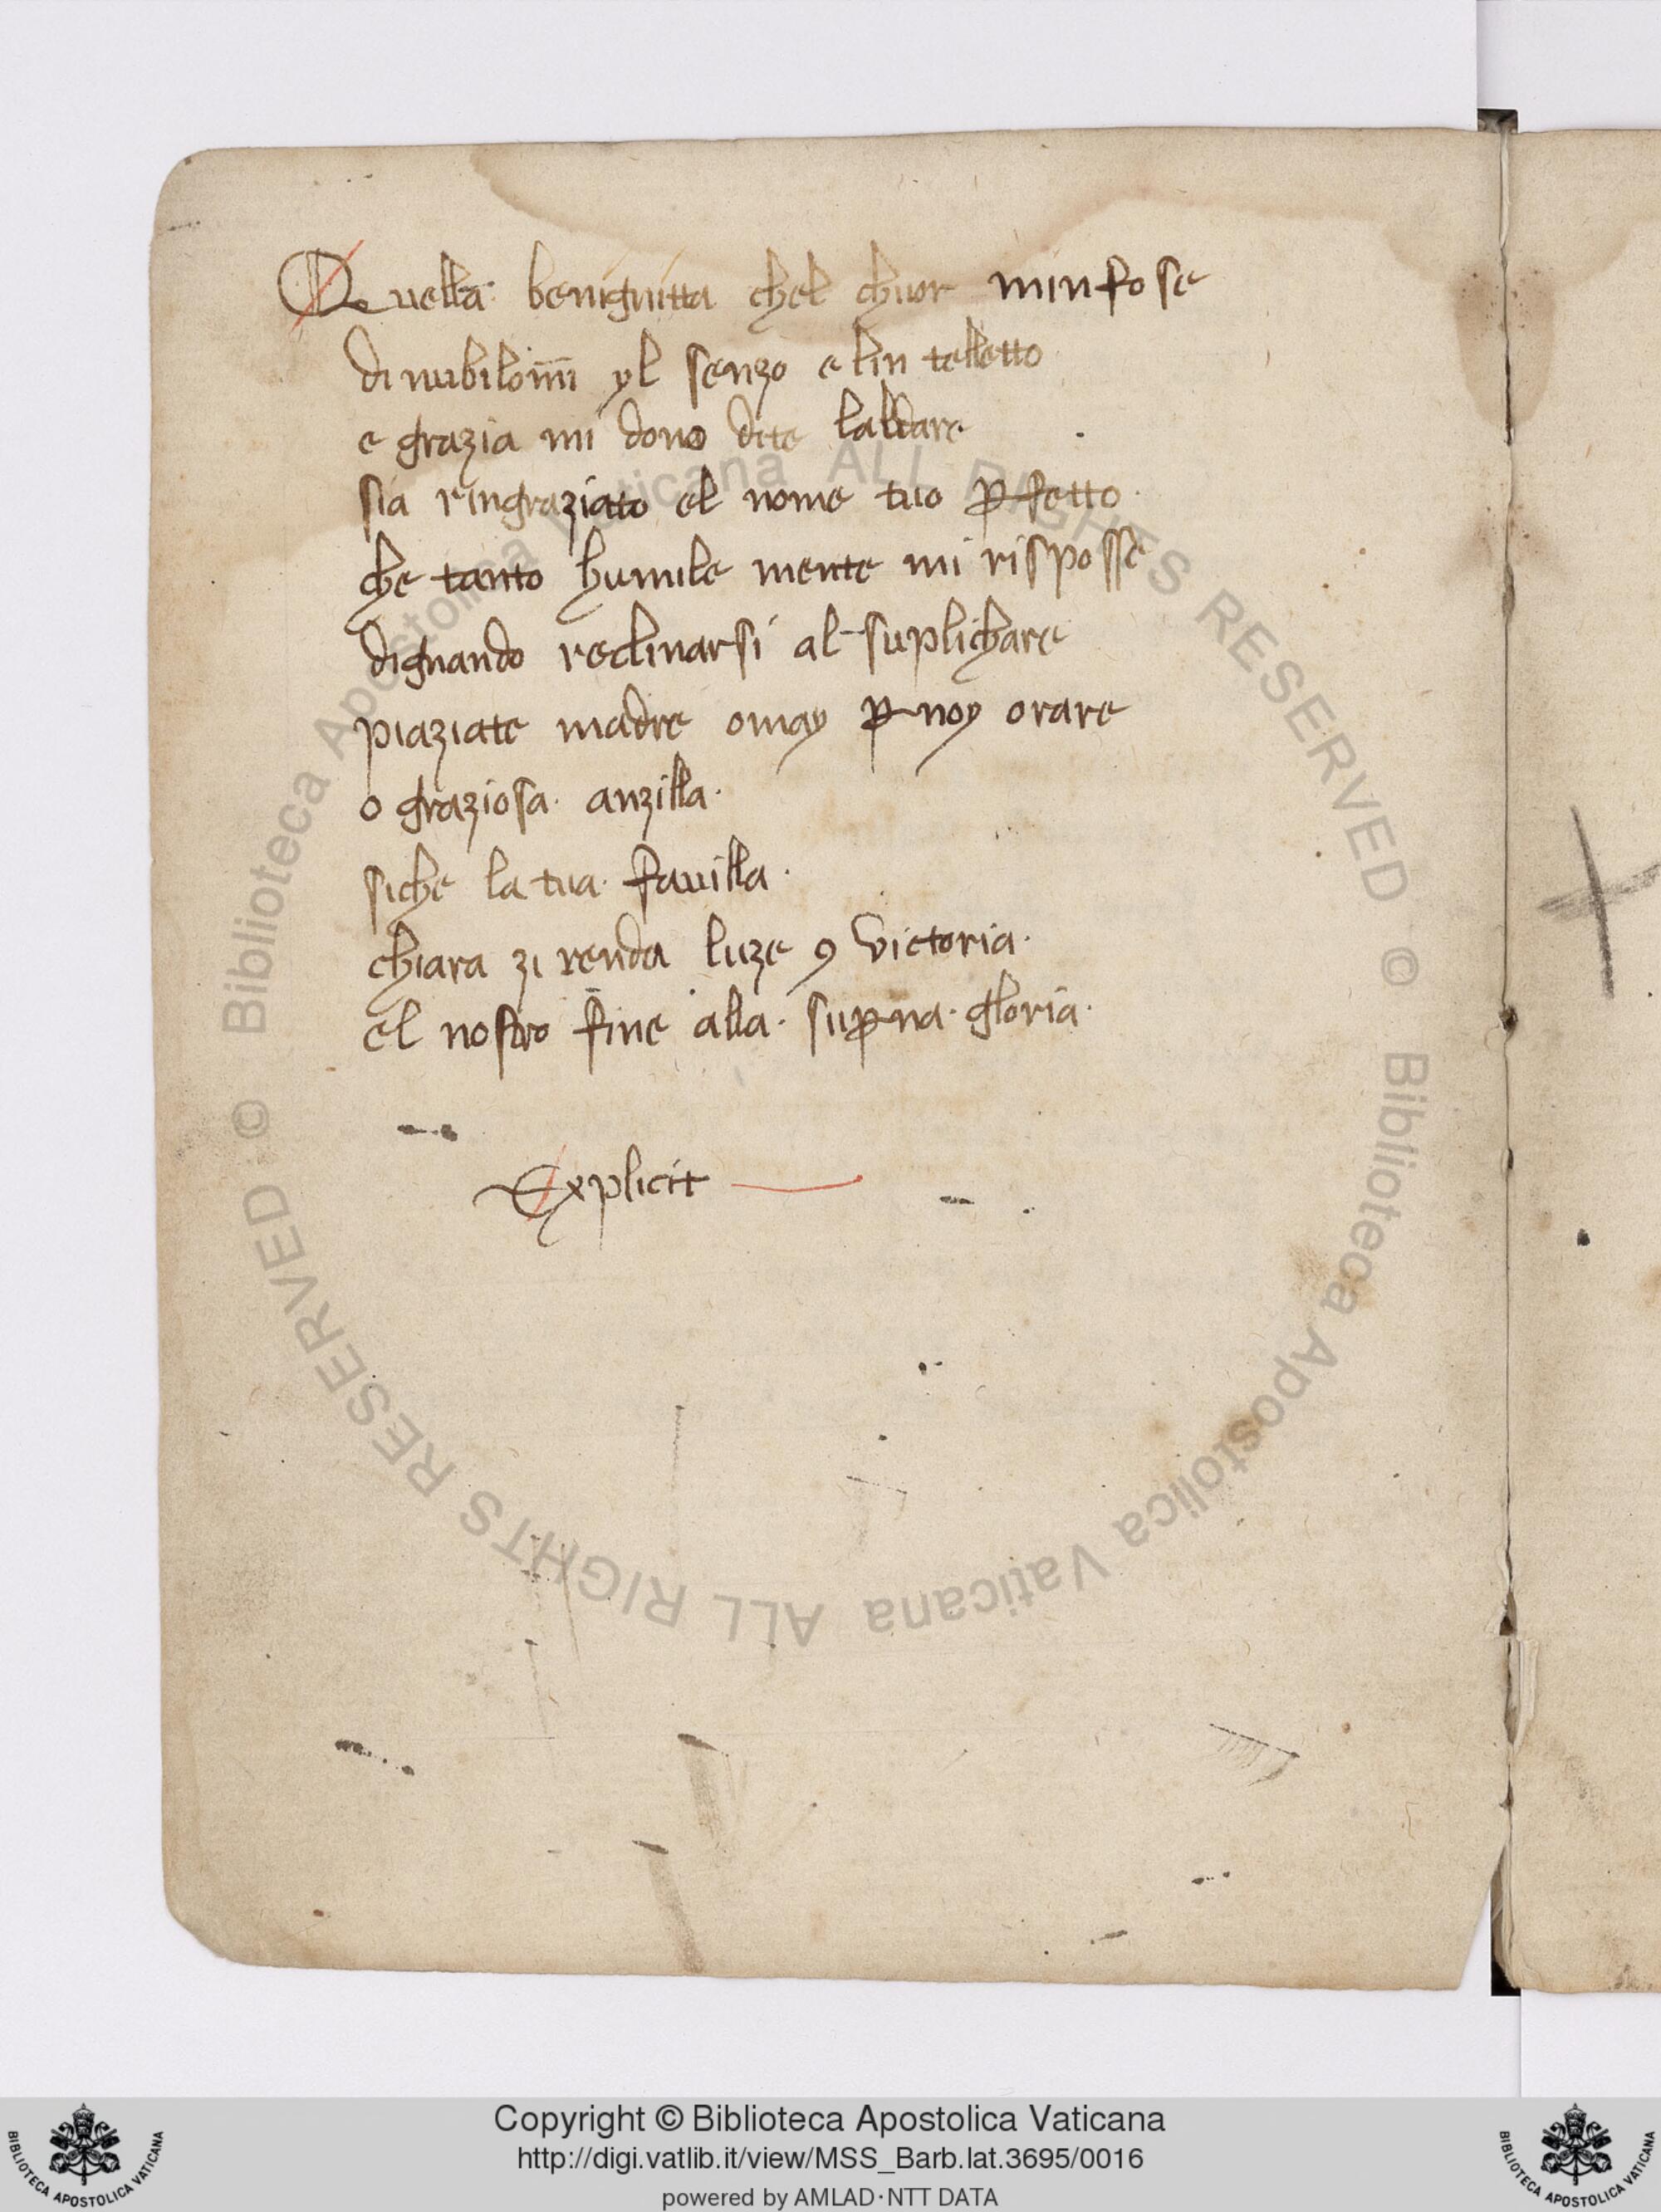 Quella· benignitta chel chuor minfose
di nubilomi yl senzo e lin telletto
e grazia mi dono dite laldare·
sia ringraziato el nome tuo ꝑfetto·
che tanto humile mente mi risposse
dignando reclinarsi al suplichare
piaziate madre omay ꝑ noy orare
o graziosa· anzilla·
siche la tua· fauilla·
chiara zi renda luze ꝯ victoria·
el nostro fine alla· suꝑna· gloria·
Explicit
Biblioteca Apostolica Vaticana ALL RIGHTS RESERVED ©
Biblioteca Apostolica Vaticana ALL RIGHTS RESERVED ©
Copyright © Biblioteca Apostolica Vaticana
http://digi.vatlib.it/view/MSS_Barb.lat.3695/0016
powered by AMLAD·NTT DATA
BIBLIOTECA APOSTOLICA VATICANA
BIBLIOTECA APOSTOLICA VATICANA